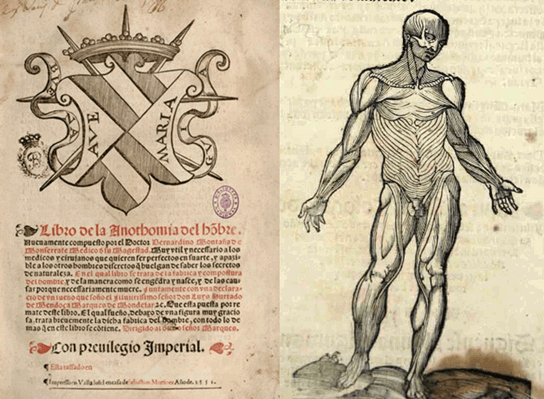 AVE MARIA
Libro de la Anothomia del hõbre.
Nueuamente compuesto por el Doctor Bernardino Montaña de
Monserrate Medico d̃ su Magestad. Muy vtil y necessario a los
medicos y cirujanos que quieren ser perfectos en su arte, y apazi-
ble a los otros hombres discretos q̃ huelgan de saber los secretos
de naturaleza. En el qual libro se trata de la fabrica y compostura
del hombre, y de la manera como se engẽdra y nasce, y de las cau-
sas porque necessariamente muere. Juntamente con vna declara-
cio de vn sueño que soño el Illustrissimo señor don Luys Hurtado
de Mendoça Marques de Mondejar ⁊c. Que esta puesta por re-
mate deste libro. El qual sueño, debaxo de vna figura muy gracio-
sa, trata breuemente la dicha fabrica del hombre, con todo lo de
mas q̃ en este libro se cõtiene. Dirigido al dicho señor Marques.
Con preuilegio Imperial.
¶ Esta tassado en